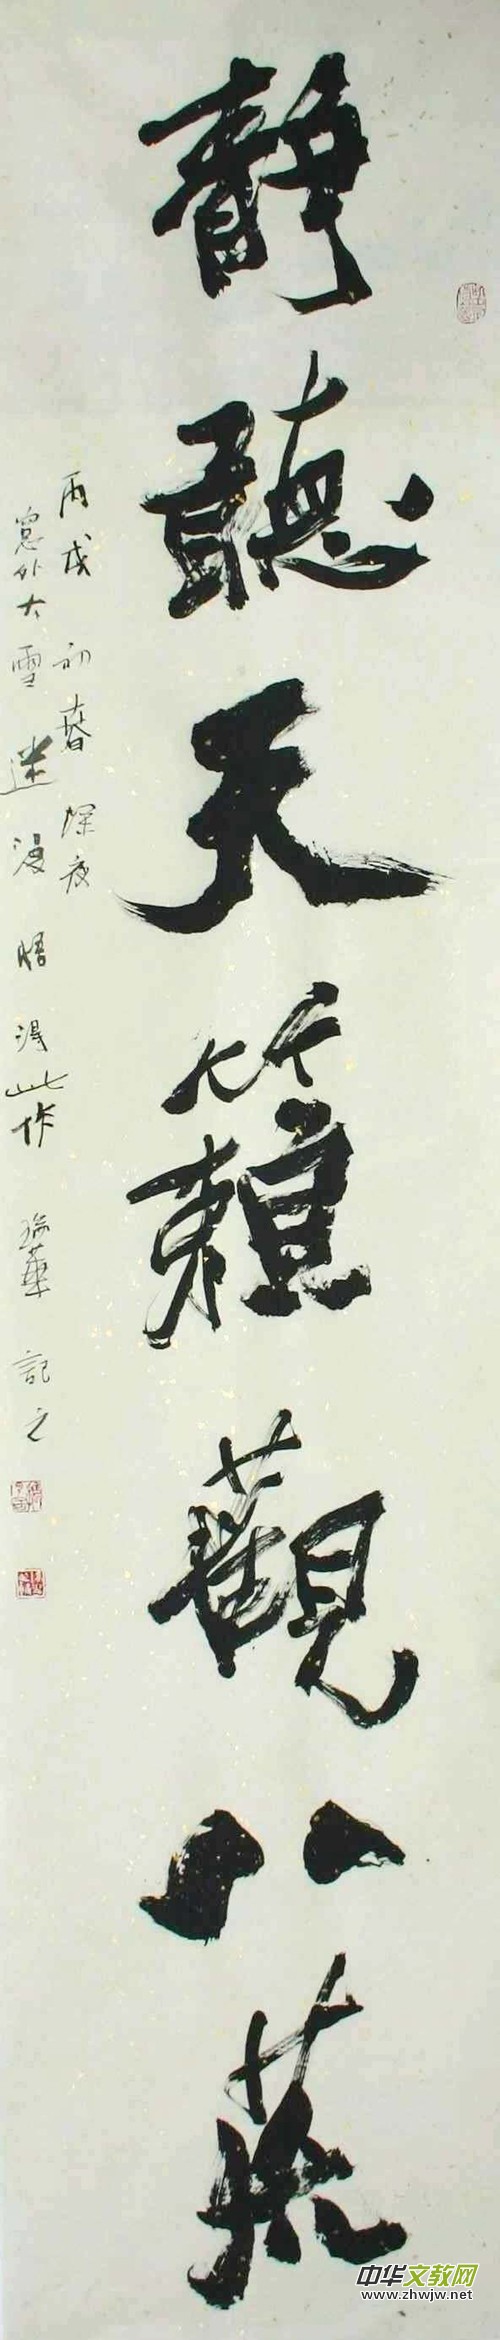 靜聽天籟觀八荒
丙戌初春深夜
窓外大雪迷漫悟得此作 瑞華記之
中华文教网
www.zhwjw.net